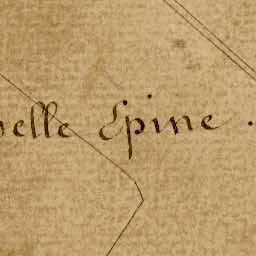 elle Epine.